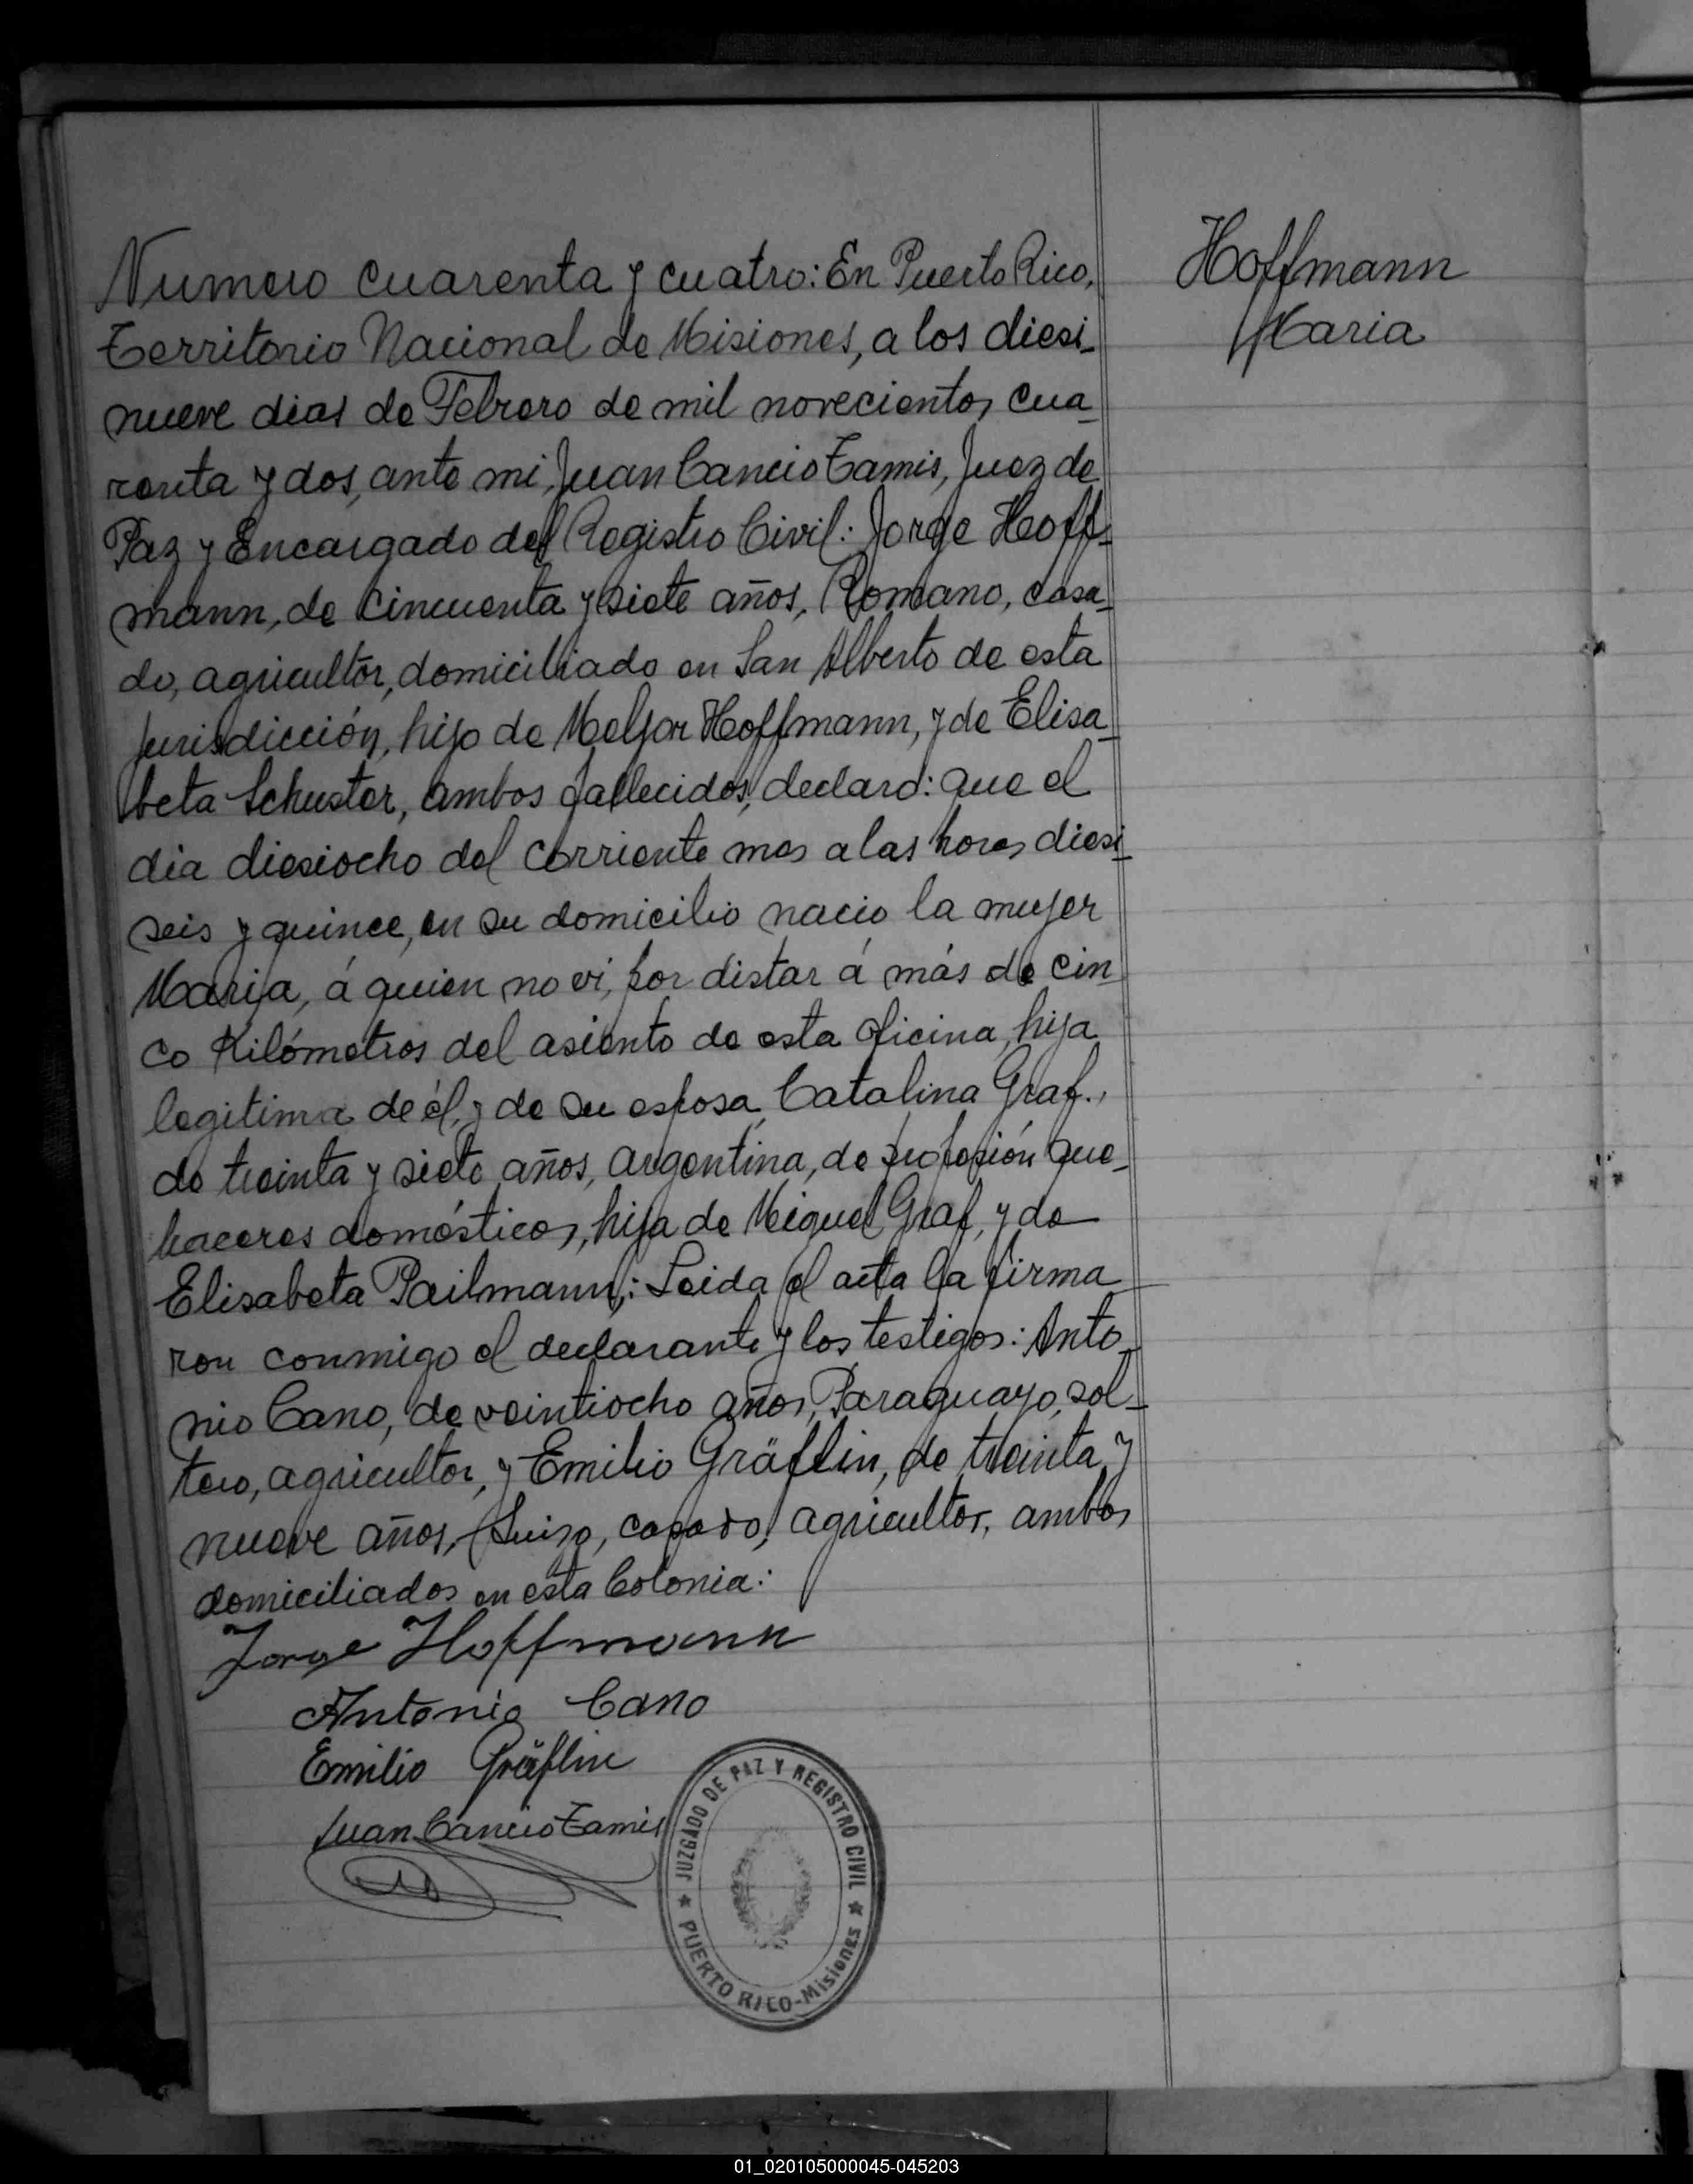 Numero cuarenta y cuatro: En Puerto Rico,
Territorio Nacional de Misiones, a los diesi-
nueve dias de Febrero de mil novecientos cua-
renta y dos, ante mi, Juan Cancio Tamis, Juez de
Paz y Encargado del Registro Civil: Jorge Hoff-
mann, de cincuenta y siete años, Romano, casa-
do, agricultor, domiciliado en San Alberto de esta
jurisdicción, hijo de Meljor Hoffmann, y de Elisa-
beta Schuster, ambos fallecidos, declaro: que el
dia diesiocho del corriente mes a las horas diesi-
seis y quince, en su domicilio nacio la mujer
Maria, á quien no vi, por distar á más de cin-
co Kilómetros del asiento de esta oficina, hija
legitima de él, y de su esposa, Catalina Graf.,
de treinta y siete años, argentina, de profesión que-
haceres domésticos, hija de Miguel Graf, y de
Elisabeta Pailmann,: Leida el acta la firma-
ron conmigo el declarante y los testigos: Anto-
nio Cano, de veintiocho años, Paraguayo, sol-
tero, agricultor, y Emilio Gräflin, de treinta y
nueve años, Suizo, casado, agricultor, ambos
domiciliados en esta Colonia:
Jorge Hoffmann
Antonio Cano
Emilio Gräflin
Juan Cancio Tamis
JUZGADO DE PAZ Y REGISTRO CIVIL
PUERTO RICO-Misiones
Hoffmann
Maria
01_020105000045-045203